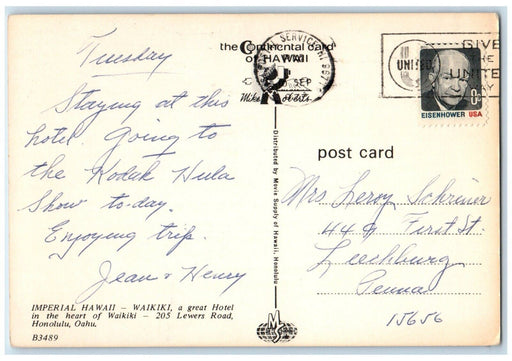 Tuesday
Staying at this
hotel. Going to
the Kodak Hula
Show to-day.
Enjoying trip.
Jean & Henry
IMPERIAL HAWAII — WAIKIKI, a great Hotel
in the heart of Waikiki — 205 Lewers Road,
Honolulu, Oahu.
B3489
the Continental card
of HAWAII
Mike Roberts
Distributed by Movie Supply of Hawaii, Honolulu
MS
SERVICE HI
SEP
UNITED
GIVE
THE
UNITED
WAY
8¢
EISENHOWER USA
post card
Mrs. Leroy Schreiner
449 First St.
Leechburg
Penna
15656